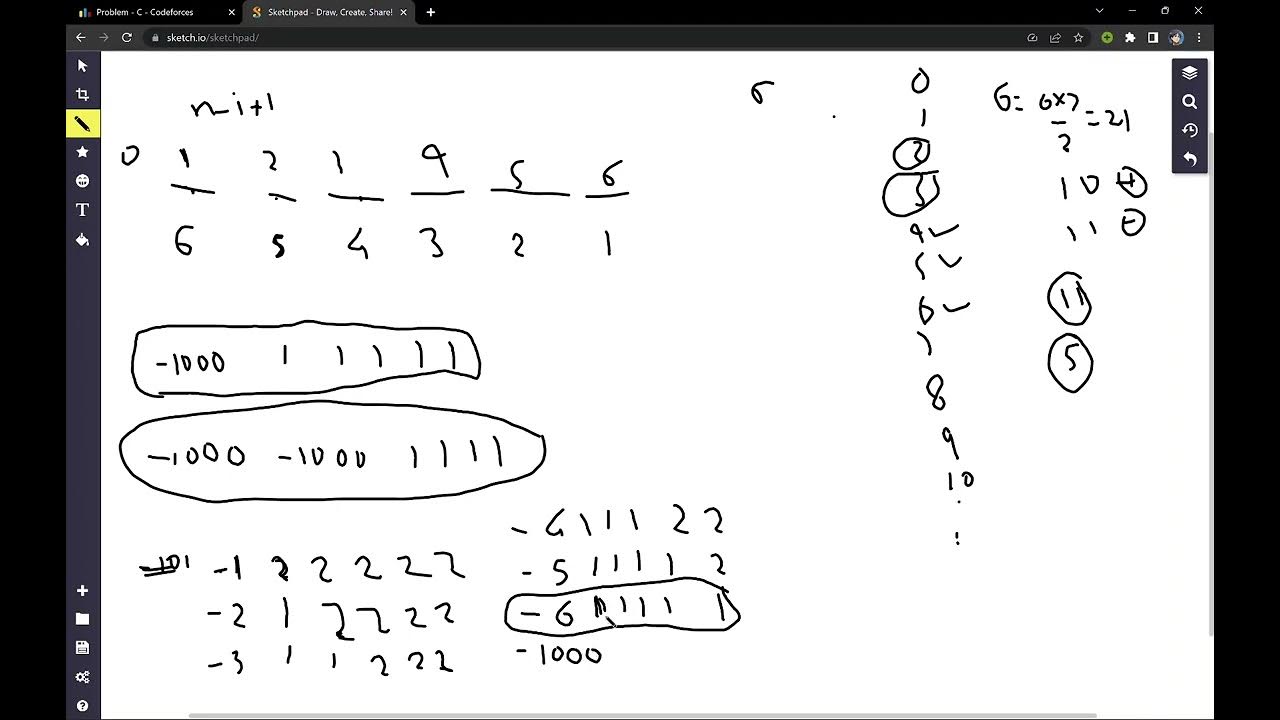 Problem - C - Codeforces
Sketchpad - Draw, Create, Share!
sketch.io/sketchpad/
T
?
n-i+1
0 1 2 1 4 5 6
6 5 4 3 2 1
-1000 1 1 1 1 1
-1000 -1000 1 1 1 1
-1 2 2 2 2 2
-2 1 2 2 2 2
-3 1 1 2 2 2
-4 1 1 1 2 2
-5 1 1 1 1 2
-6 1 1 1 1 1
-1000
0
1
2
3
4
5
6
7
8
9
10
6 = 6x7
2
= 21
10 +
11 -
11
5